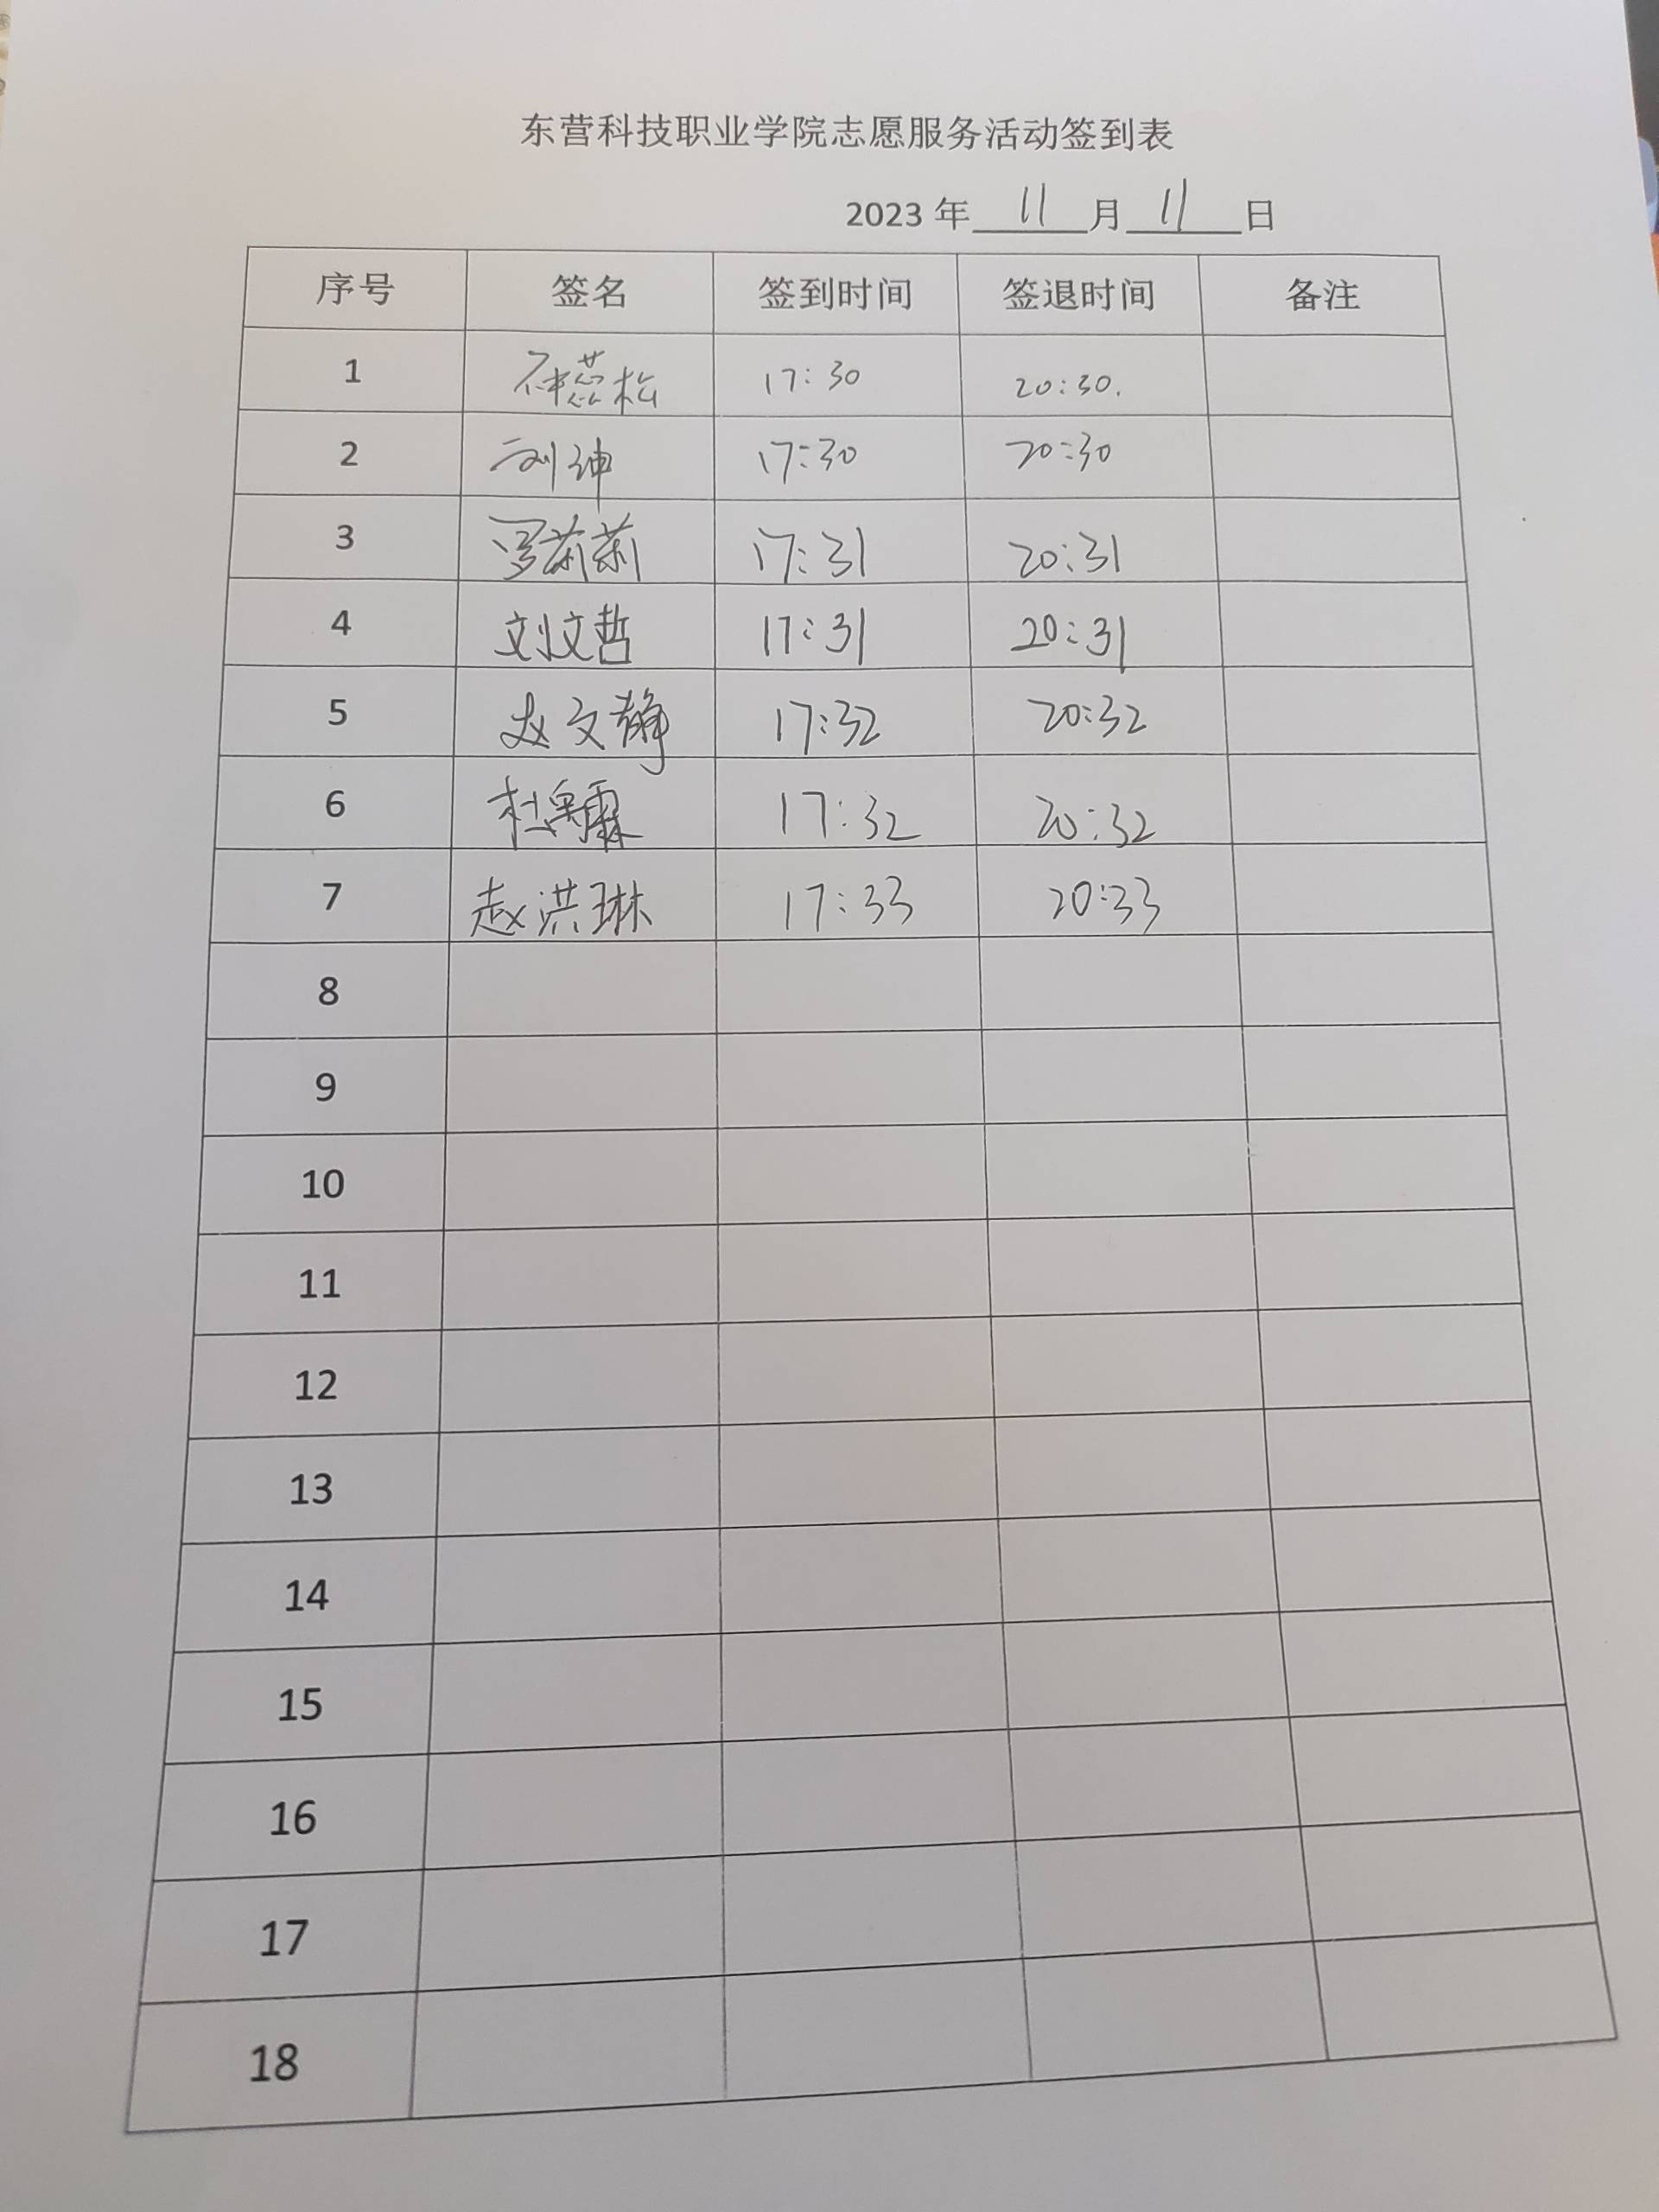 东营科技职业学院志愿服务活动签到表
2023 年 11 月 11 日
序号 签名 签到时间 签退时间 备注
1 17:30 20:30.
2 刘坤 17:30 20:30
3 罗莉莉 17:31 20:31
4 刘文哲 17:31 20:31
5 赵文静 17:32 20:32
6 杜 霖 17:32 20:32
7 赵洪琳 17:33 20:33
8
9
10
11
12
13
14
15
16
17
18